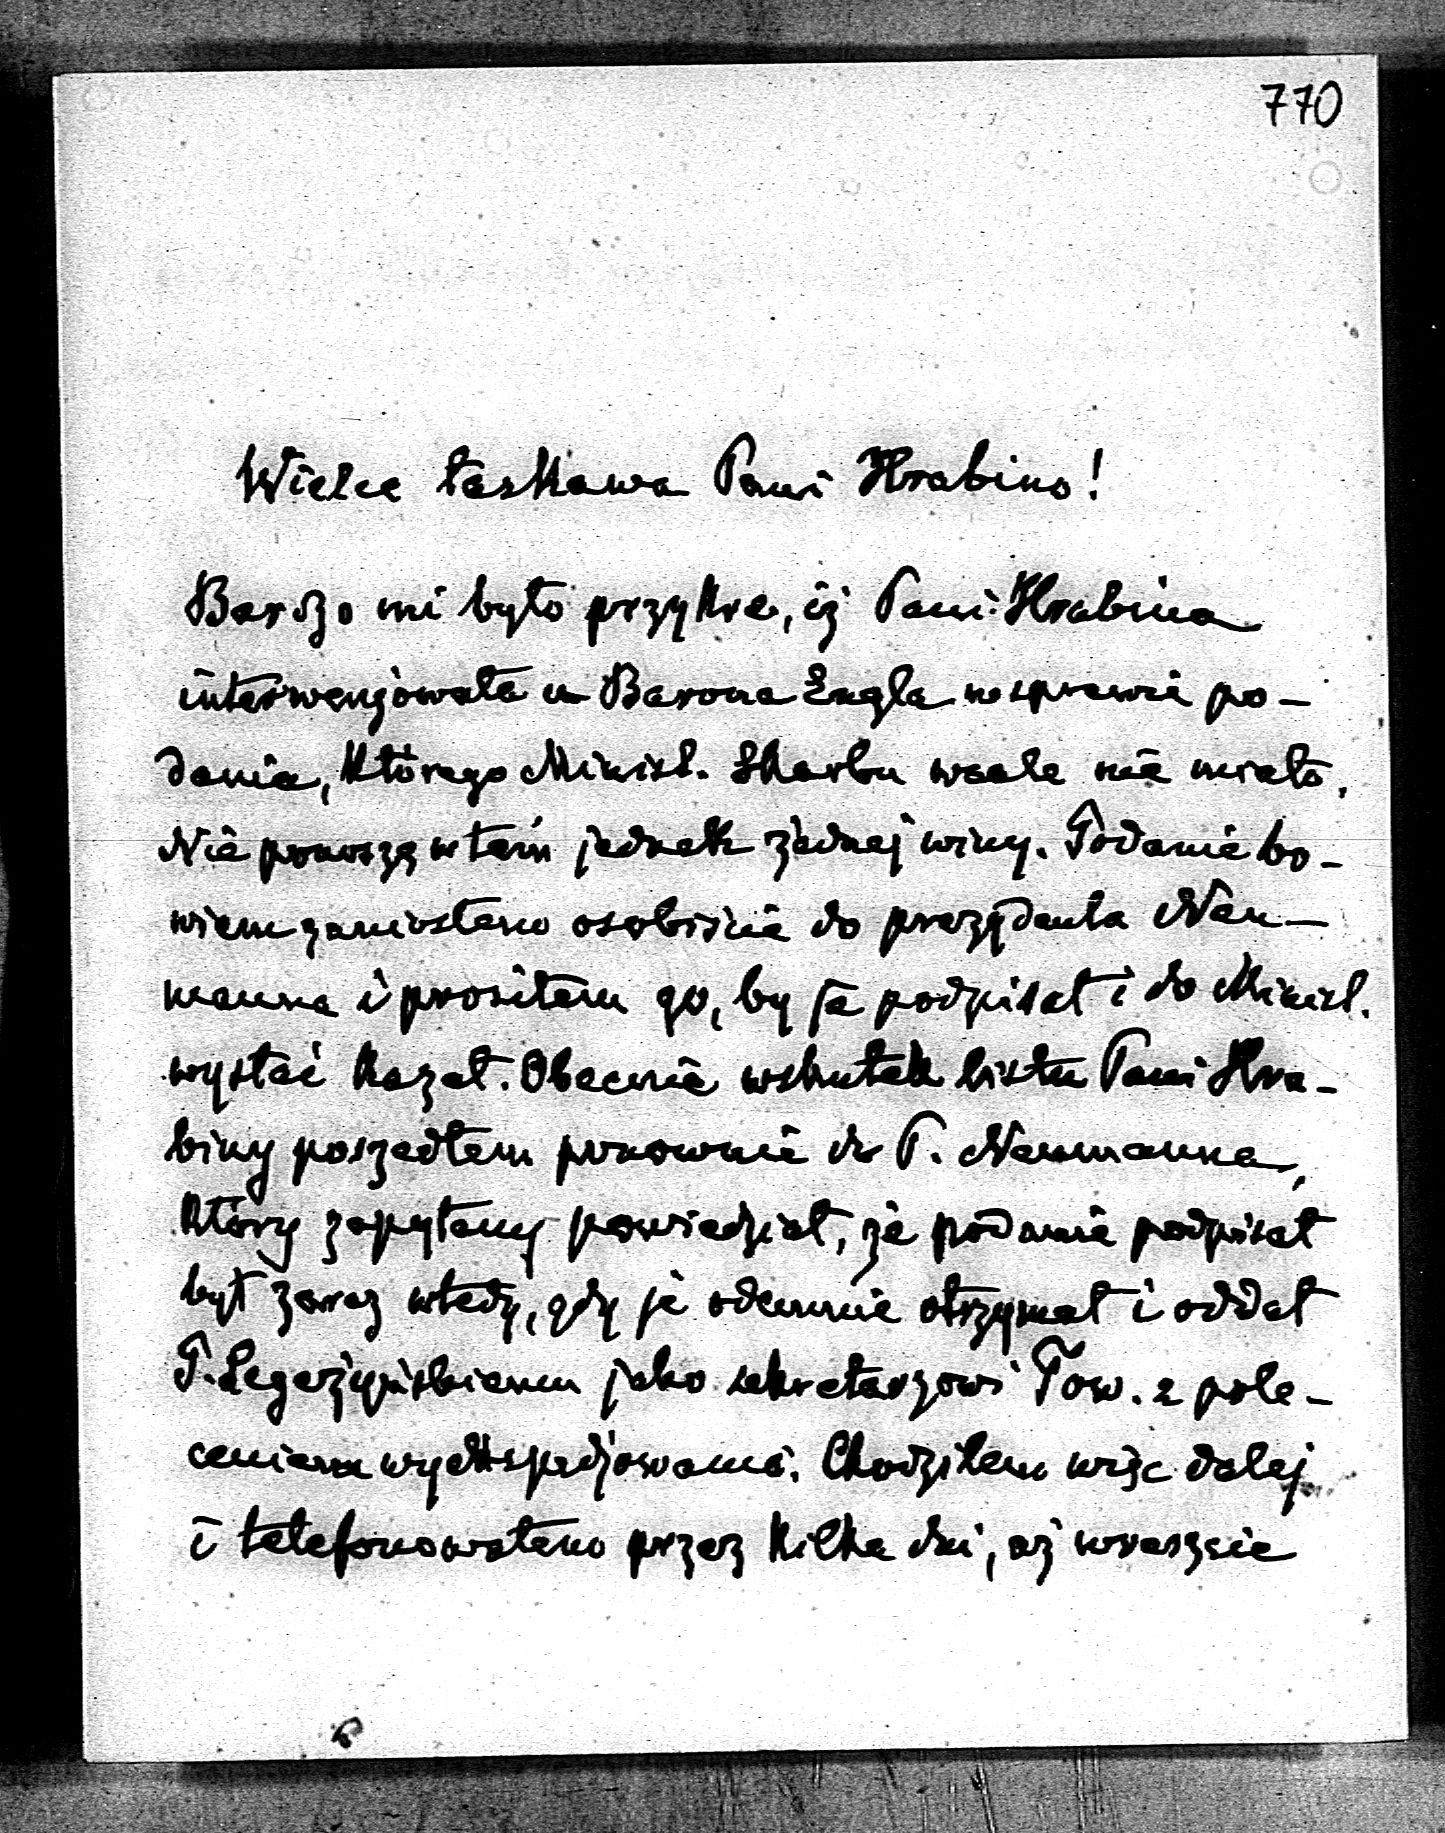 770
Wielce łaskawa Pani Hrabino!
Bardzo mi było przykre, iż Pani Hrabina
interwenjowała u Barona Engla w sprawie po-
dania, którego Minist. Skarbu wcale nie miało.
Nie ponoszę w tem jednak żadnej winy. Podanie bo-
wiem zaniosłem osobiście do prezydenta Neu-
manna i prosiłem go, by je podpisał i do Minist.
wysłać kazał. Obecnie wskutek listu Pani Hra-
biny poszedłem ponownie do P. Neumanna,
który zapytany powiedział, że podanie podpisał
był zaraz wtedy, gdy je odemnie otrzymał i oddał
P. Legeżyńskiemu jako sekretarzowi Tow. z pole-
ceniem wyekspedjowania. Chodziłem więc dalej
i telefonowałem przez kilka dni, aż wreszcie